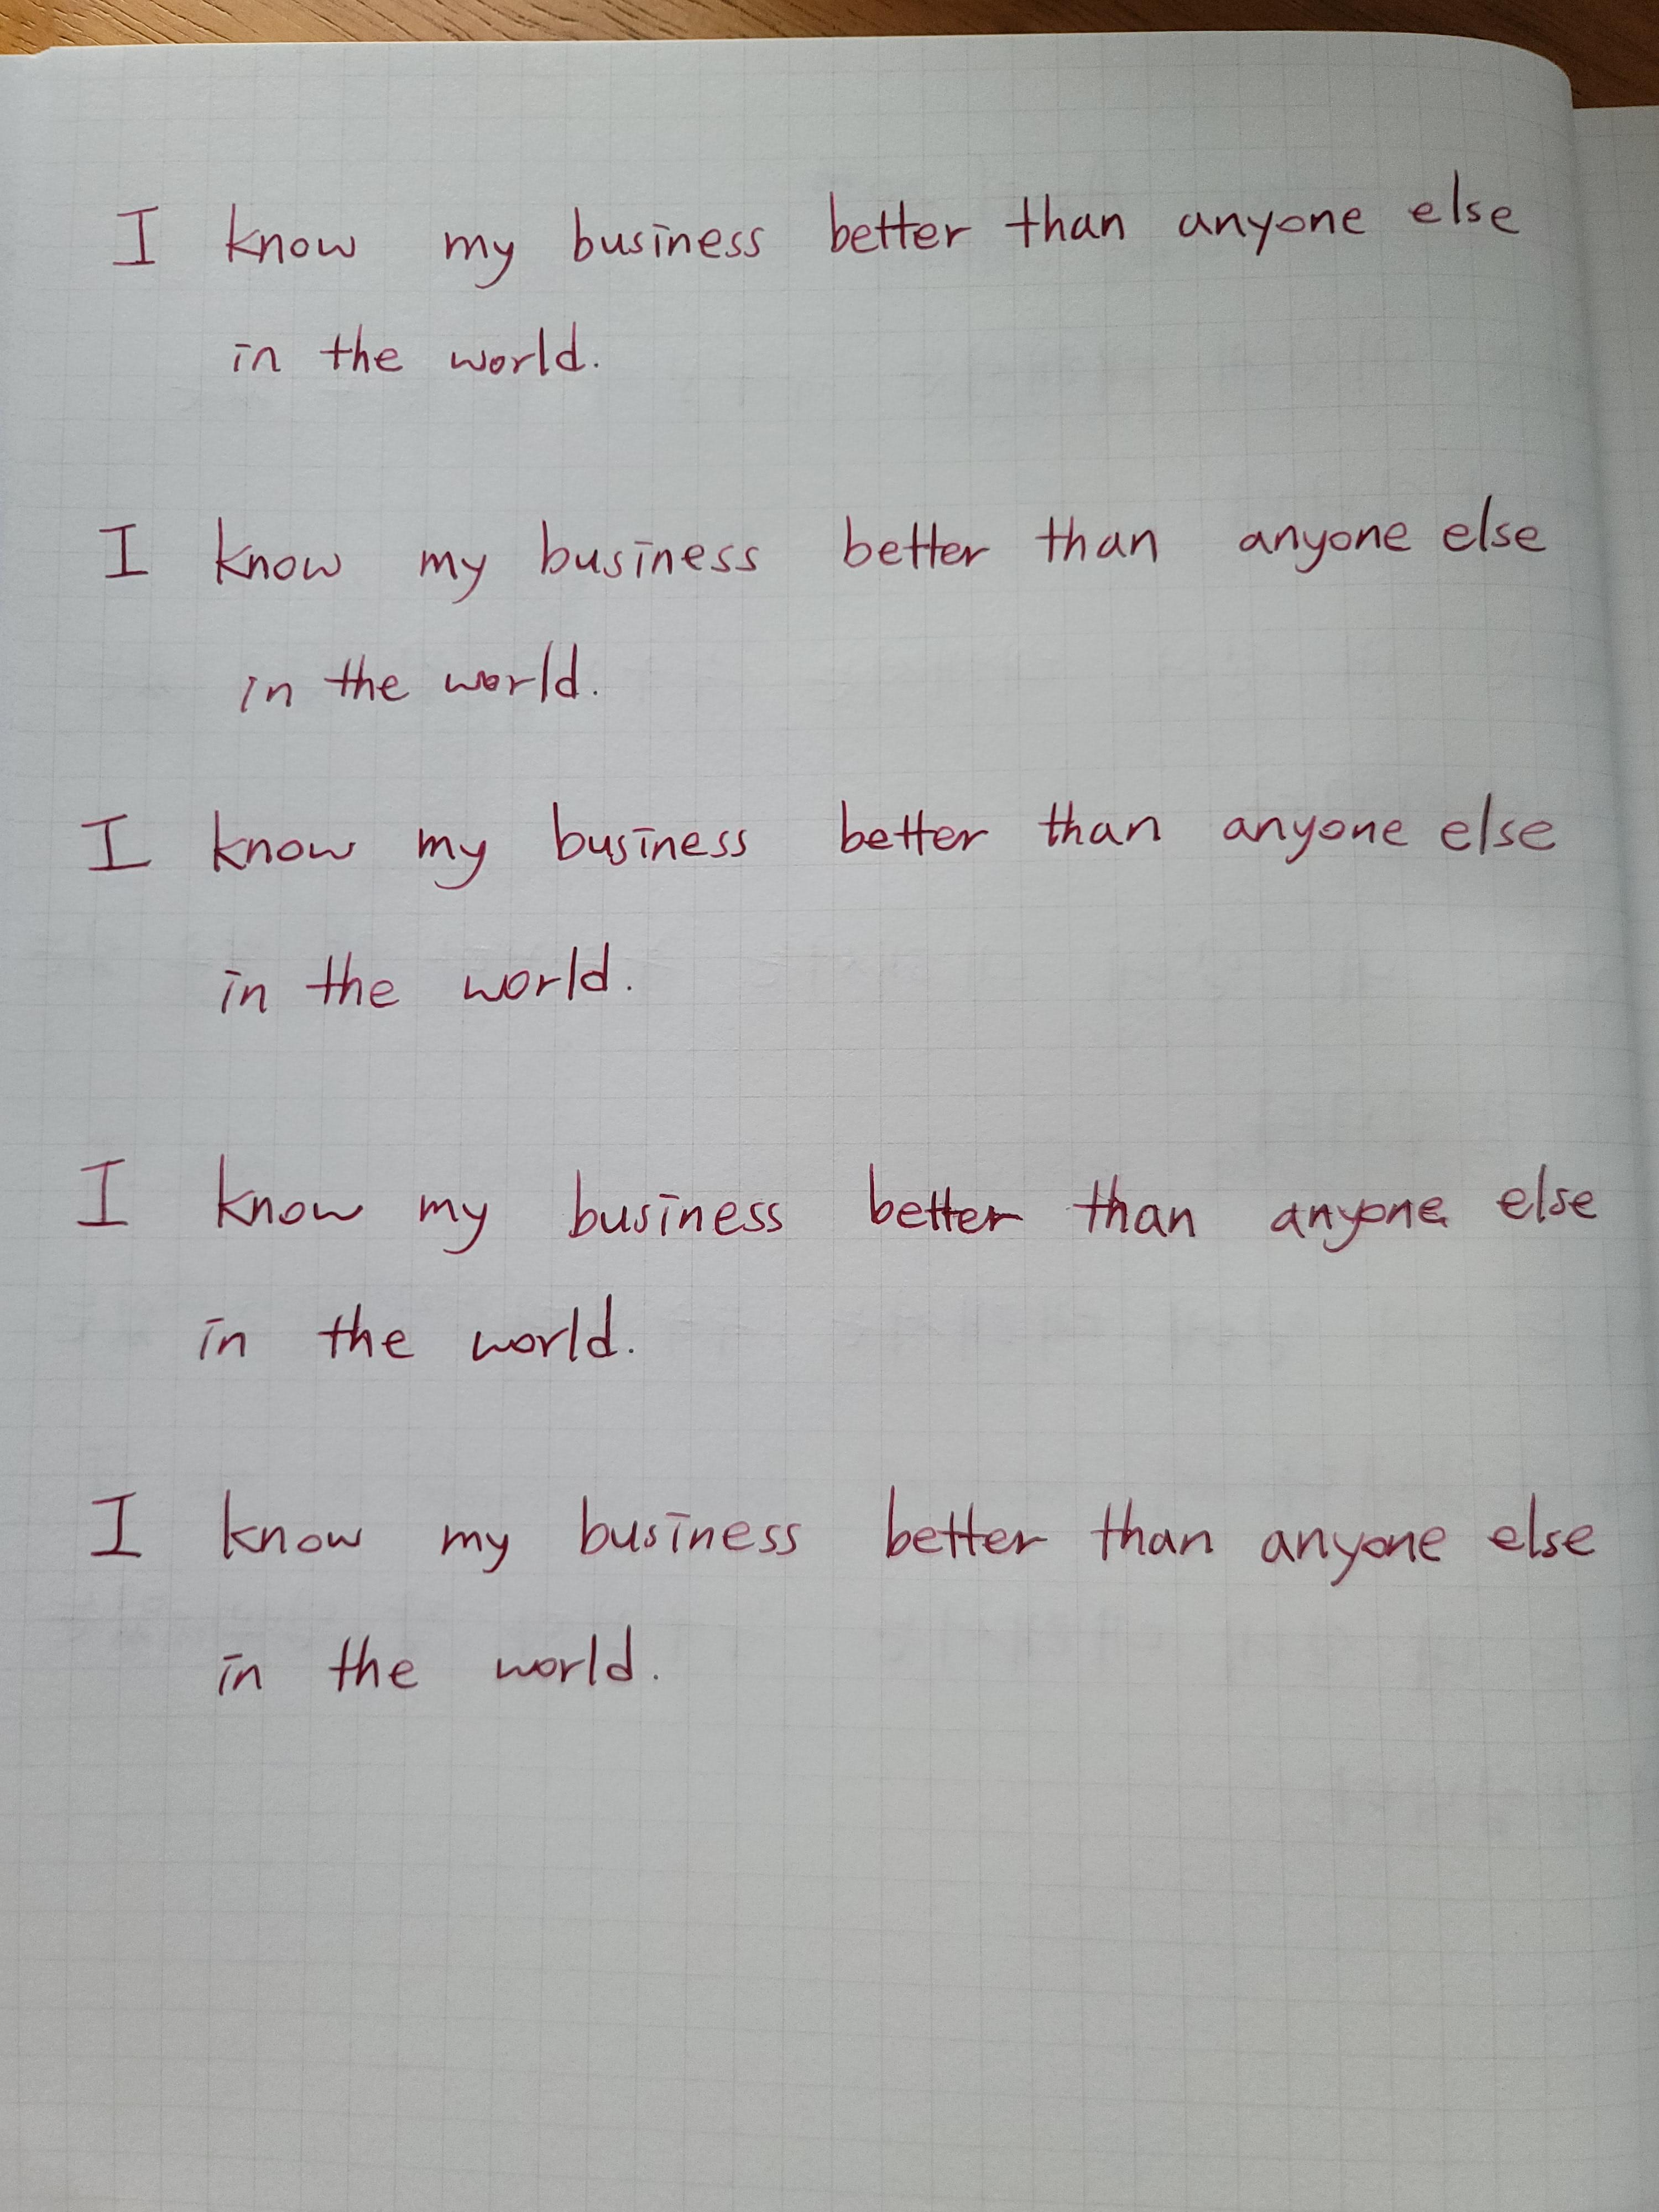 I know my business better than anyone else
in the world.
I know my business better than anyone else
in the world.
I know my business better than anyone else
in the world.
I know my business better than anyone else
in the world.
I know my business better than anyone else
in the world.